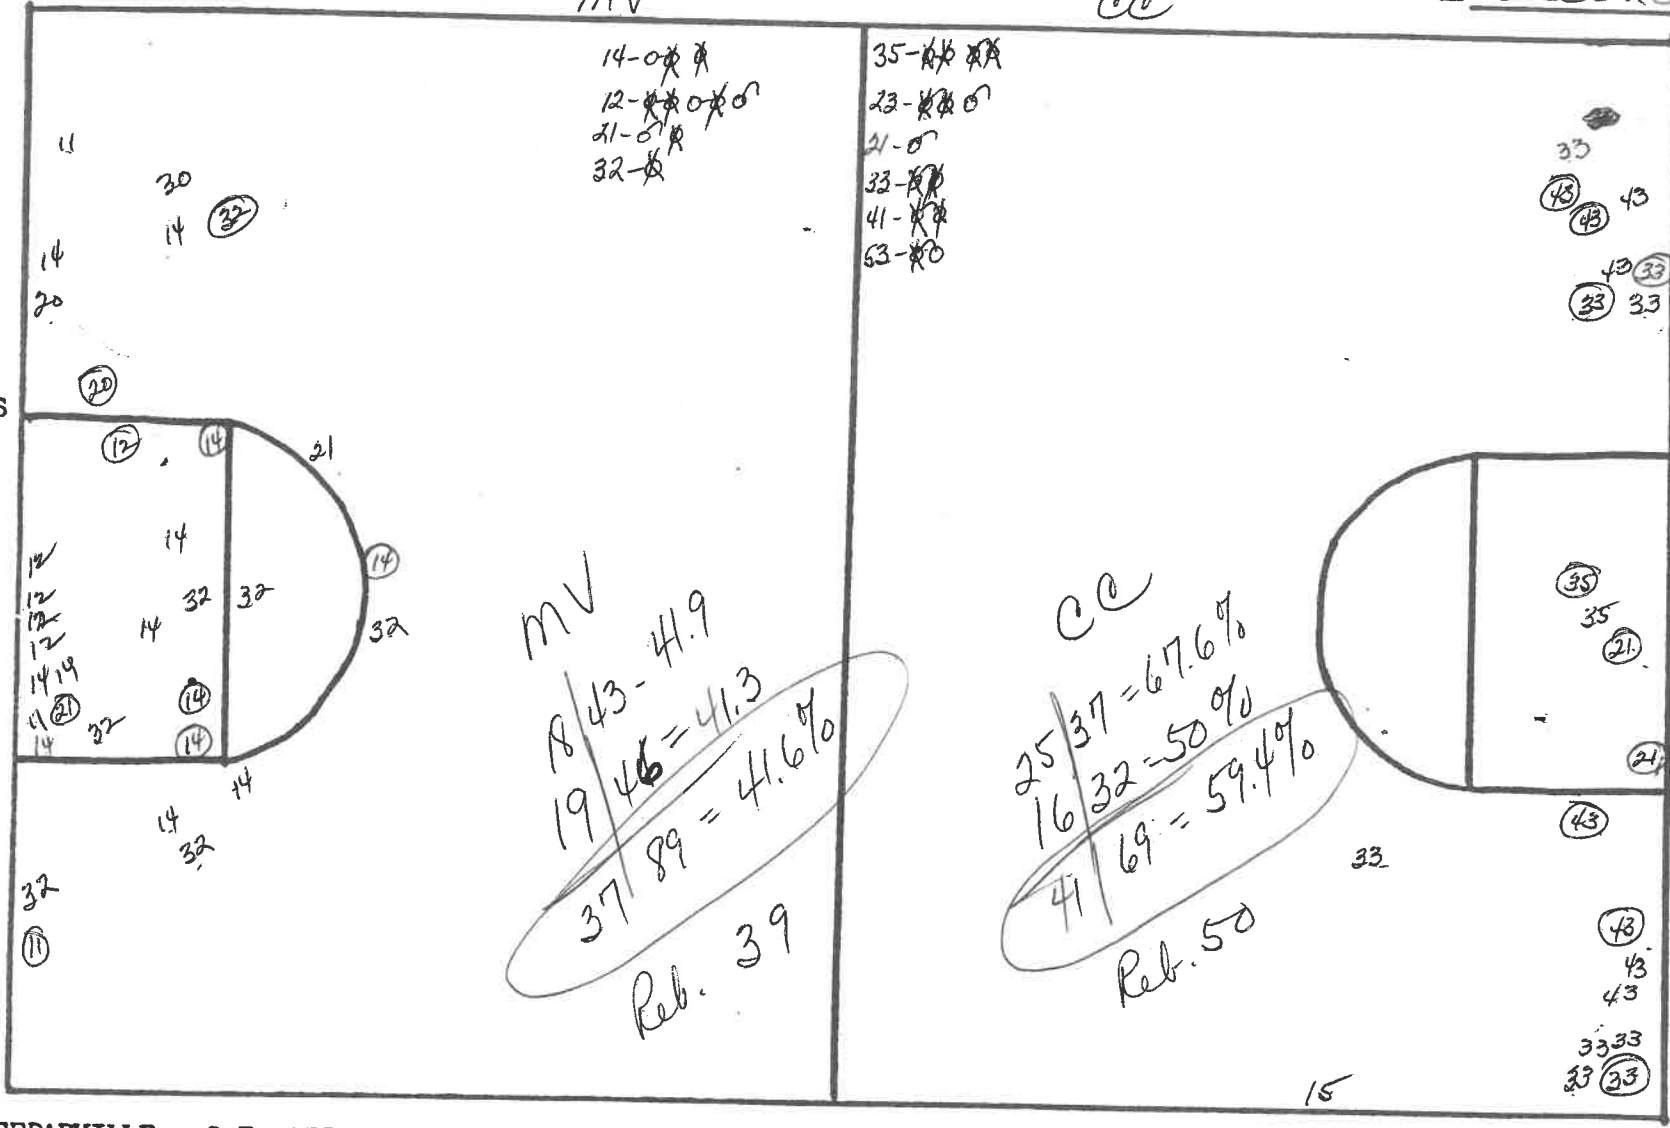 MV
CC
14-
12-
21-
32-
35-
23-
21-
33-
41-
53-
11
30
14 32
14
20
20
12 14
21
14
14
12
12
12
12
32 32
14
32
14 14
14
11 21
32
14
14
14
14
32
32
11
MV
18 43 - 41.9
19 46 = 41.3
37 89 = 41.6%
Reb. 39
CC
25 37 = 67.6%
16 32 = 50%
41 69 = 59.4%
Reb. 50
33
43 43
43
43 33
33 33
35
35
21
21
43
33
43
43
43
33 33
33 33
15